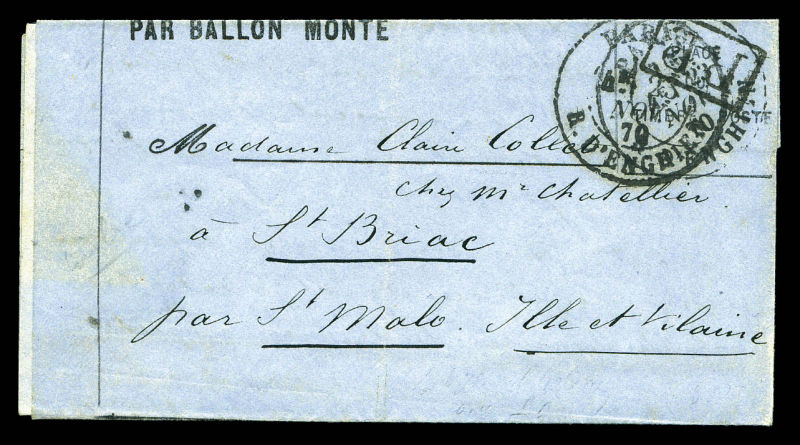 PAR BALLON MONTÉ
PARIS
NOV.
70
R. D'ENGHIEN
PLACE
Madame Claire Collet
chez Mr Chatellier
à St Briac
par St Malo. Ille et Vilaine